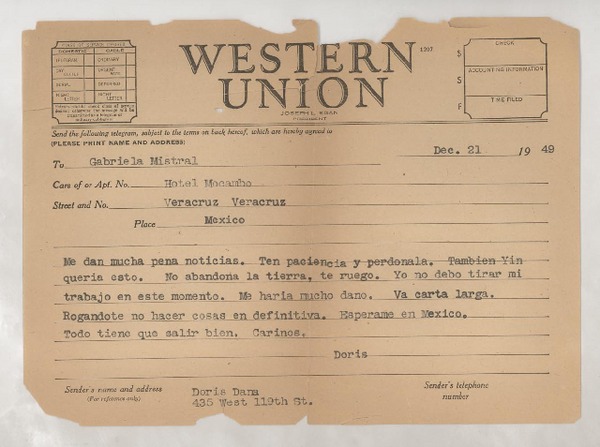 WESTERN
UNION
1207
CHECK
ACCOUNTING INFORMATION
TIME FILED
$
Send the following telegram, subject to the terms on back hereof, which are hereby agreed to
(PLEASE PRINT NAME AND ADDRESS)
Dec. 21 19 49
To Gabriela Mistral
Care of or Apt. No. Hotel Mocambo
Street and No. Veracruz Veracruz
Place Mexico
Me dan mucha pena noticias. Ten paciencia y perdonala. Tambien Yin
queria esto. No abandona la tierra, te ruego. Yo no debo tirar mi
trabajo en este momento. Me haria mucho dano. Va carta larga.
Rogandote no hacer cosas en definitiva. Esperame en Mexico.
Todo tiene que salir bien. Carinos.
Doris
Sender's name and address
(For reference only)
Doris Dana
435 West 119th St.
Sender's telephone
number